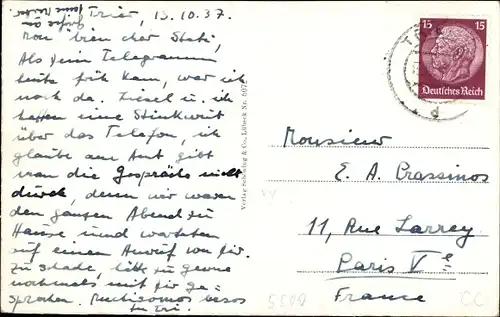 Trier, 13.10.37.
mon bien cher Stati,
Als Dein Telegramm
heute früh kam, war ich
noch da. Liesel u. ich
hatten eine Stinkwut
über das Telefon, ich
glaube am Amt gibt
man die Gespräche nicht
durch, denn wir waren
den ganzen Abend zu
Hause und warteten
auf einen Anruf von Dir.
Zu schade, hätte so gerne
nochmals mit Dir ge-
sprochen. besos
Verlag Schöning & Co., Lübeck Nr.
15 15
Deutsches Reich
Monsieur
E. A. Prassinos
11, Rue Larrey
Paris Ve
France
CC